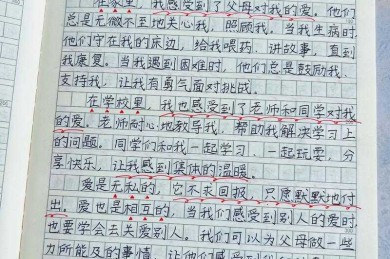 在家里，我感受到了父母对我的爱。他们
总是无微不至地关心我，照顾我。当我生病时
他们守在我的床边，给我喂药、讲故事，直到
我康复。当我遇到困难时，他们总是鼓励我、
支持我，让我有勇气面对挑战。
在学校里，我也感受到了老师和同学对我
的爱。老师耐心地教导我，帮助我解决学习上
的问题。同学们和我一起学习、一起玩耍，分
享快乐，让我感到集体的温暖。
爱是无私的，它不求回报，只愿默默地付
出。爱也是相互的，当我们感受到别人的爱时
也要学会去关爱别人。我们可以为父母做一些
力所能及的事情，让他们感受到